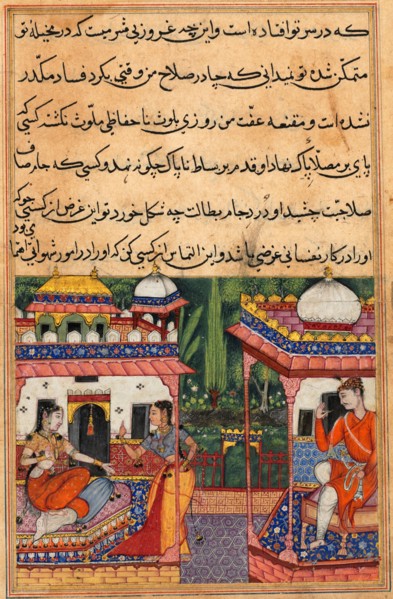 که در سر تو افتاده است و این چه غرور بی شرمیست که در مخیلهٔ تو
متمکن شده تو نمیدانی که چادر صلاح من وقتی بکرد فساد مکدر
نشده است و مقنعه عفت من روزی بلوث ناحفاظی ملوث نکشته کسی که
پای بر مصلا پاک نهاد او قدم بر بساط ناپاک چکونه نهد و کسی که جام صاف
صلاحیت چشید او دردجام بطالت چه شکل خورد تو این عرض از کسی جو که
وی بود
او را در کار نفسانی غرضی باشد و این التماس از کسی کن که او را در امور شهوانی